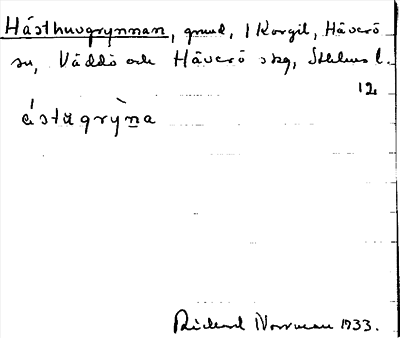 Hästhuvgrynnan, grund, 1 Korgil, Häverö
sn, Väddö och Häverö skg, Sthlms l.
12.
ástùgrỳṉa
Rickard Norrman 1933.